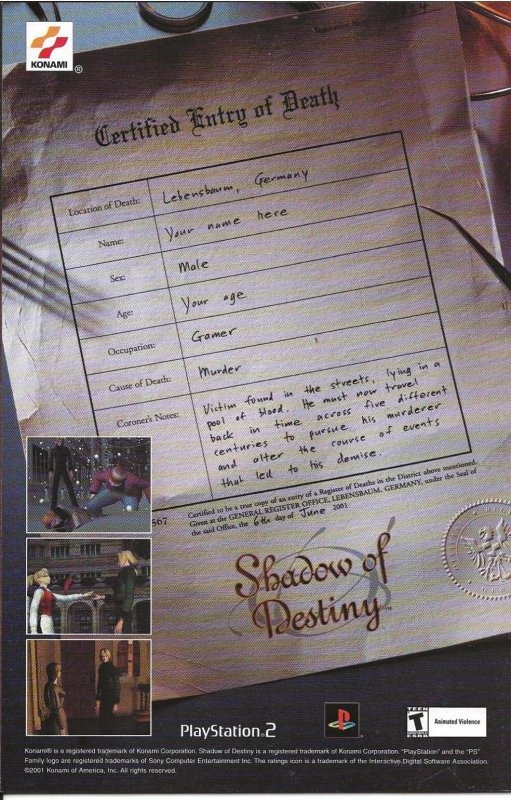 KONAMI®
Certified Entry of Death
Location of Death: Lebensbaum, Germany
Name: Your name here
Sex: Male
Age: Your age
Occupation: Gamer
Cause of Death: Murder
Coroner's Notes: Victim found in the streets, lying in a
pool of blood. He must now travel
back in time across five different
centuries to pursue his murderer
and alter the course of events
that led to his demise.
567
Certified to be a true copy of an entry of a Register of Deaths in the District above mentioned.
Given at the GENERAL REGISTER OFFICE, LEBENSBAUM, GERMANY, under the Seal of
the said Office, the 6th day of June 2001
Shadow of
Destiny™
PlayStation®2
TEEN
T
Animated Violence
ESRB
Konami® is a registered trademark of Konami Corporation. Shadow of Destiny is a registered trademark of Konami Corporation. "PlayStation" and the "PS"
Family logo are registered trademarks of Sony Computer Entertainment Inc. The ratings icon is a trademark of the Interactive Digital Software Association.
©2001 Konami of America, Inc. All rights reserved.